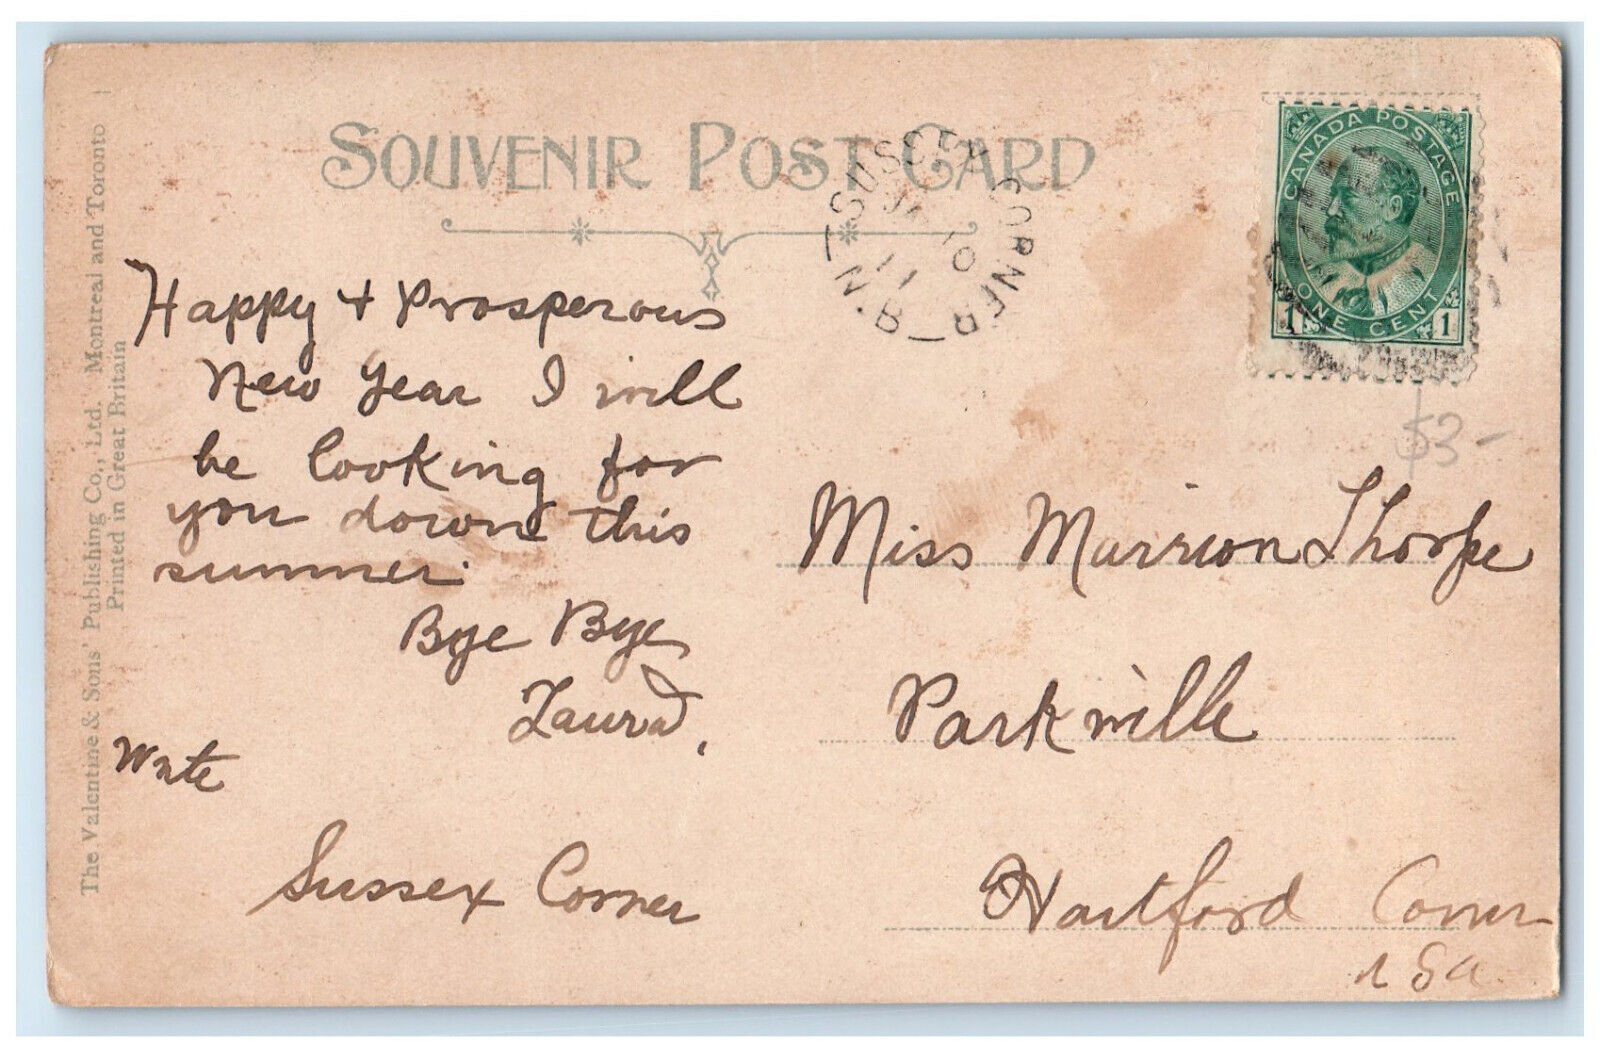 SOUVENIR POST CARD
SUSSEX CORNER
JA 10
11
N.B.
CANADA POSTAGE
ONE CENT
1 1
$3-
Happy + Prosperous
New Year I will
be looking for
you down this
summer.
Bye Bye
Laura,
Write
Sussex Corner
Miss Marrion Thorpe
Parkville
Hartford Conn
USA.
The Valentine & Sons' Publishing Co., Ltd. Montreal and Toronto
Printed in Great Britain